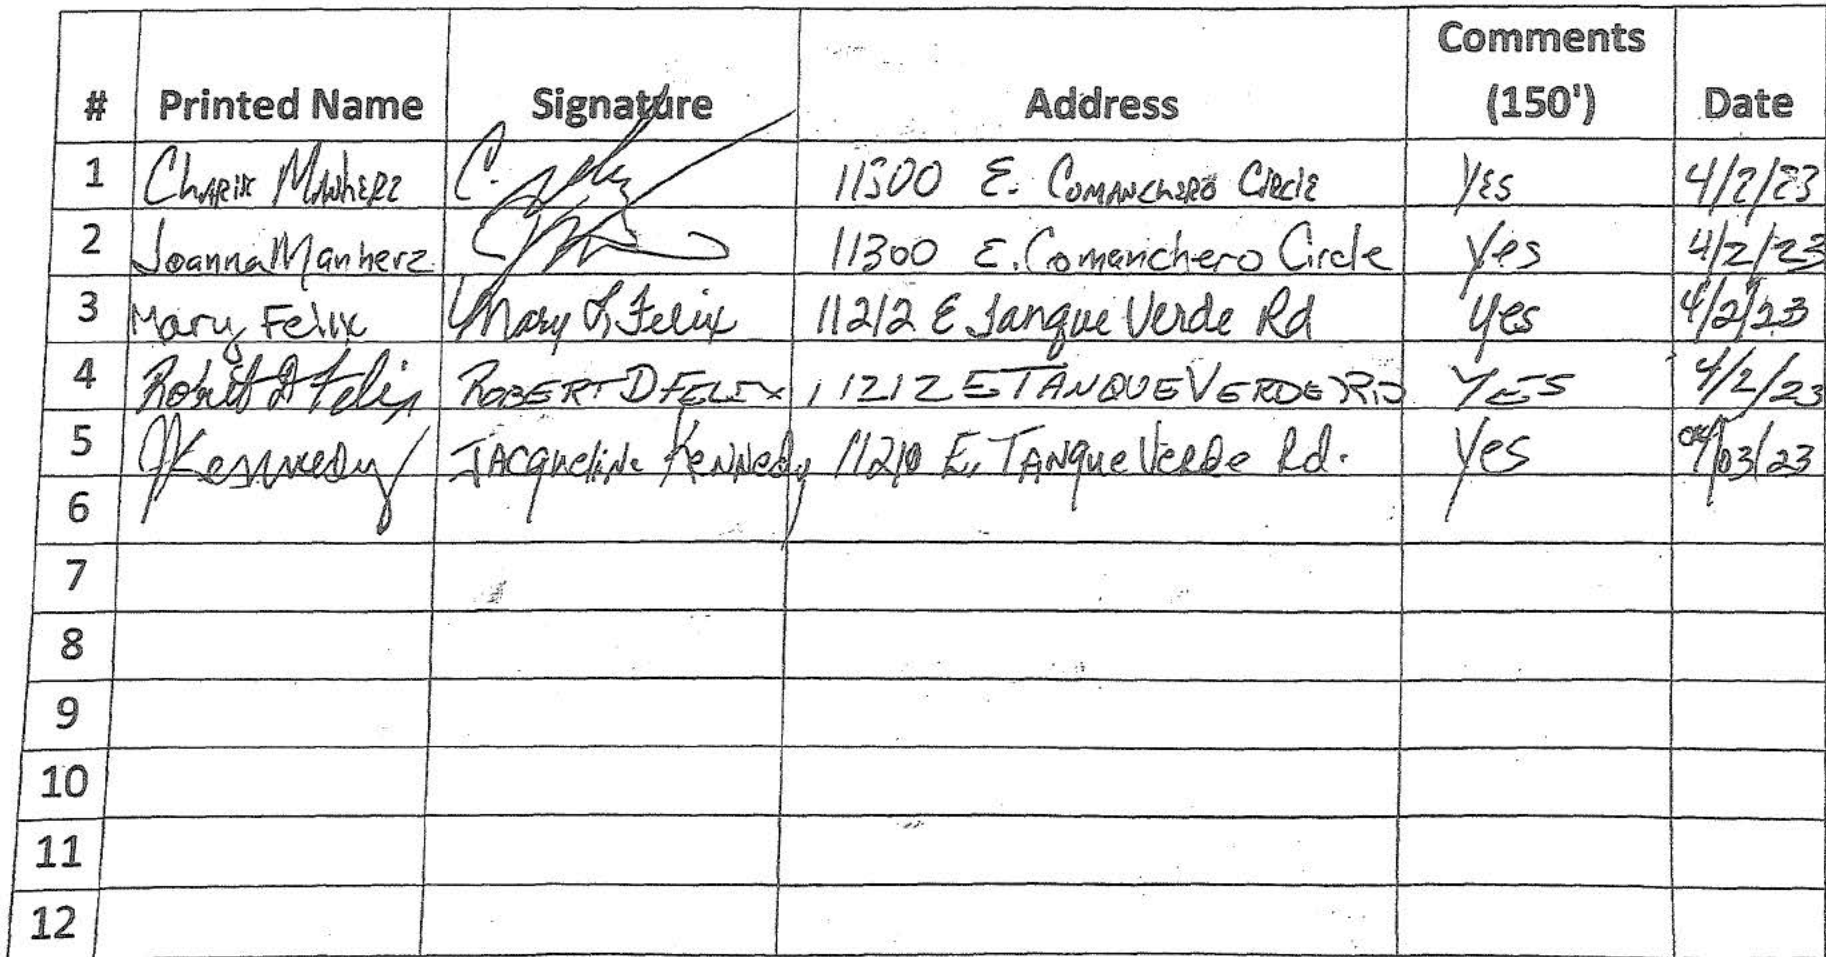 # Printed Name Signature Address Comments (150') Date
1 Charlie Manherz C. 11300 E. Comanchero Circle Yes 4/2/23
2 Joanna Manherz 11300 E. Comanchero Circle Yes 4/2/23
3 Mary Felix Mary L Felix 11212 E Tanque Verde Rd Yes 4/2/23
4 Robert D Felix ROBERT D FELIX 11212 E TANQUE VERDE RD YES 4/2/23
5 JKennedy Jacqueline Kennedy 11210 E. Tanque Verde Rd. Yes 04/03/23
6
7
8
9
10
11
12